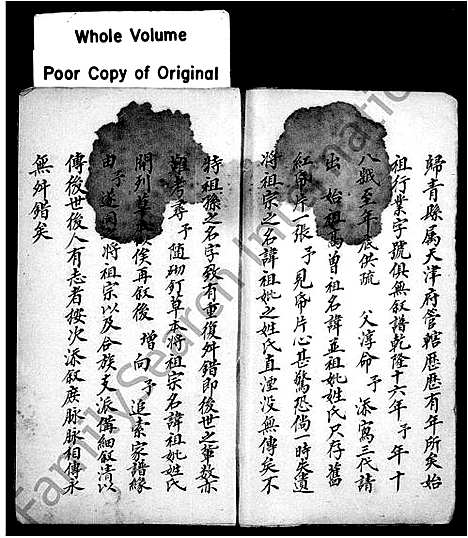 Whole Volume
Poor Copy of Original
歸青縣属天津府管轄歷歷有年所矣始
祖行業字號俱無叙譜乾隆十六年予年十
八歲至年底供䟽父淳命予添寫三代請
出始祖高曾祖名諱並祖妣姓氏只存舊
紅帋片一張予見帋片心甚驚恐倘一時失遺
將祖宗之名諱祖妣之姓氏直湮没無傳矣不
特祖孫之名字致有重復舛錯即後世之輩數亦
難考尋予随訂草本將祖宗名諱祖妣姓氏
開列草本以俟再叙後增向予追索家譜緣
由予遂同將祖宗以及合族支派偹細叙清以
傳後世後人有志者按次添叙庶脉脉相傳永
無舛錯矣
FamilySearch International